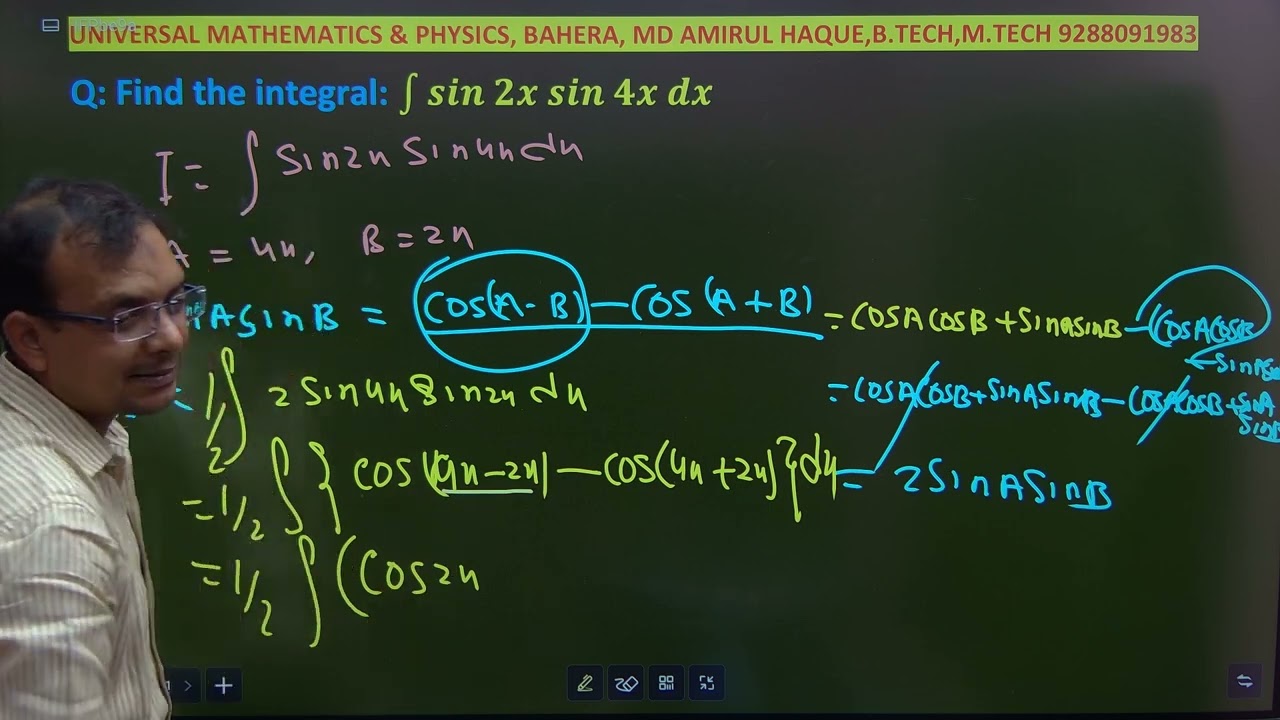 UNIVERSAL MATHEMATICS & PHYSICS, BAHERA, MD AMIRUL HAQUE,B.TECH,M.TECH 9288091983
Q: Find the integral: ∫ sin 2x sin 4x dx
I = ∫ sin2x sin4x dx
A = 4x, B = 2x
A sin B = cos(A - B) - cos(A + B)
= cosA cosB + sinA sinB - (cosA cosB
- sinA
= cosA cosB + sinA sinB - cosA cosB + sinA
sinB
= 2 sinA sinB
= 1/2 ∫ 2 sin4x sin2x dx
= 1/2 ∫ { cos(4x - 2x) - cos(4x + 2x) } dx
= 1/2 ∫ (cos2x